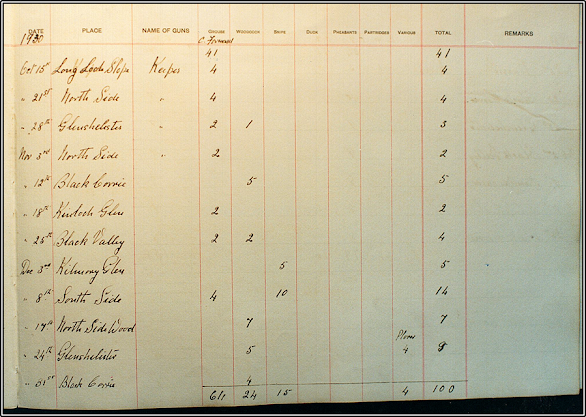 DATE PLACE NAME OF GUNS GROUSE WOODCOCK SNIPE DUCK PHEASANTS PARTRIDGES VARIOUS TOTAL REMARKS
1930 C Forward
41 41
Oct 15th Long Loch Slope Keeper 4 4
" 21st North Side " 4 4
" 28th Glenshelister " 2 1 3
Nov 3rd North Side " 2 2
" 12th Black Corrie 5 5
" 18th Glen 2 2
" 25th Black Valley 2 2 4
Dec 3rd Kilmony Glen 5 5
" 8th South Side 4 10 14
" 17th North Side Wood 7 7
Plover
" 24th Glenshelister 5 4 9
" 31st Black Corrie 4
61 24 15 4 100